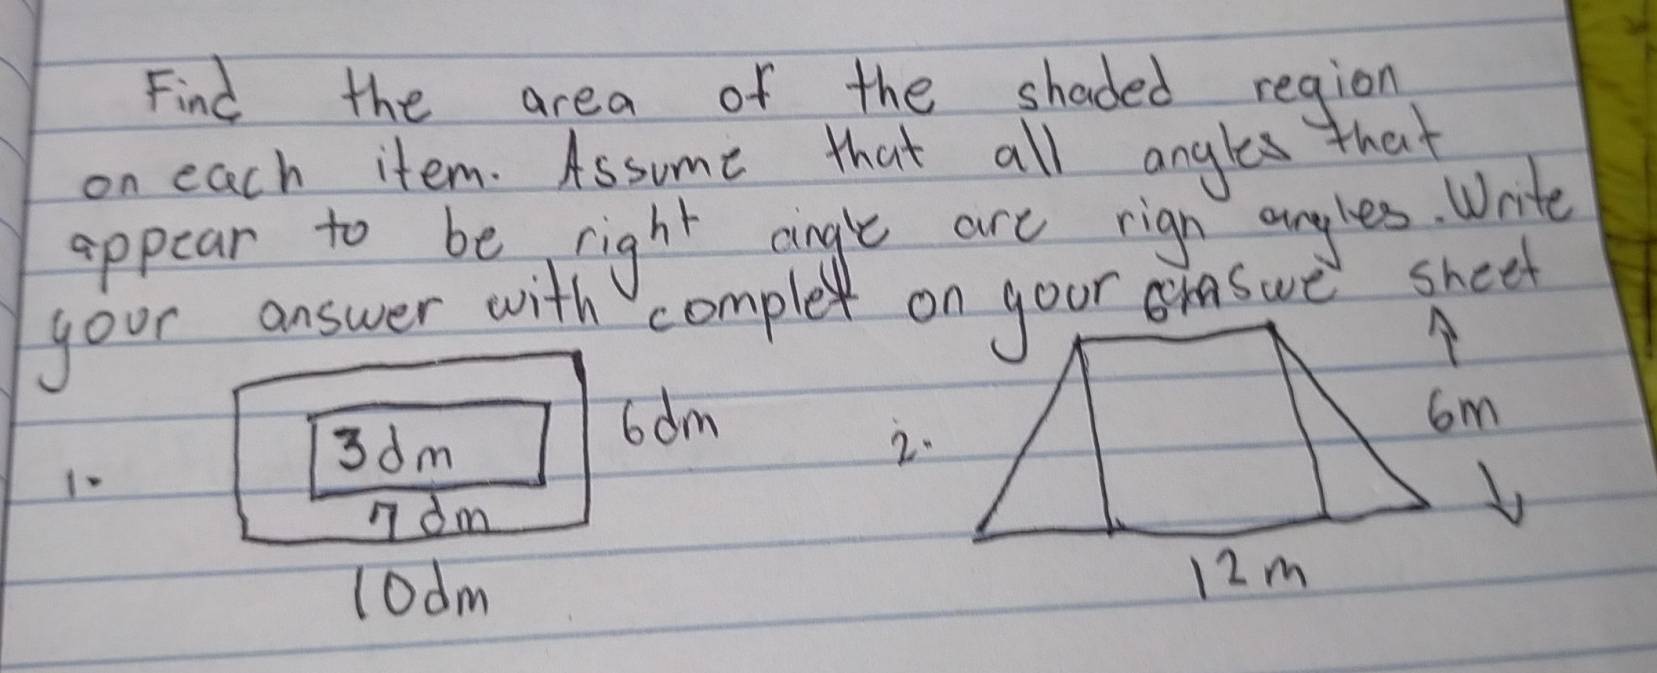 Find the area of the shaded region
on each item. Assume that all angles that
appear to be right angle are rign angles. Write
your answer with complet on your answe sheet
1.
3dm
7dm
6dm
10dm
2.
6m
12m